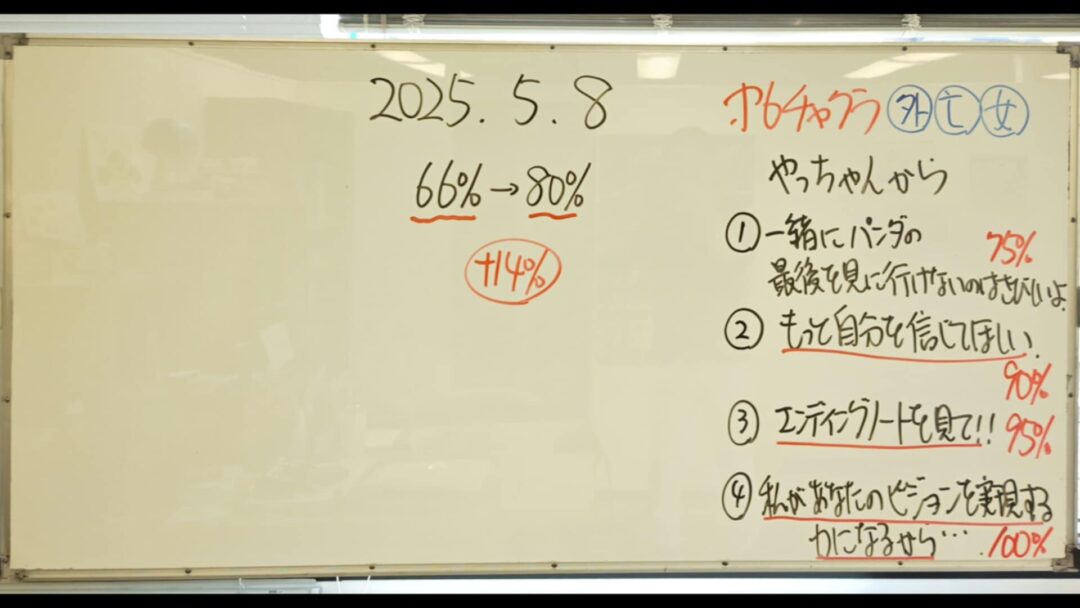 2025.5.8
66%→80%
+14%
ホ6チャクラ 外 亡 女
やっちゃんから
① 一緒にパンダの 75%
最後を見に行けないのはさびしいよ.
② もっと自分を信じてほしい.
90%
③ エンディングノートを見て!! 95%
④ 私があなたのビジョンを実現する
力になるから… 100%